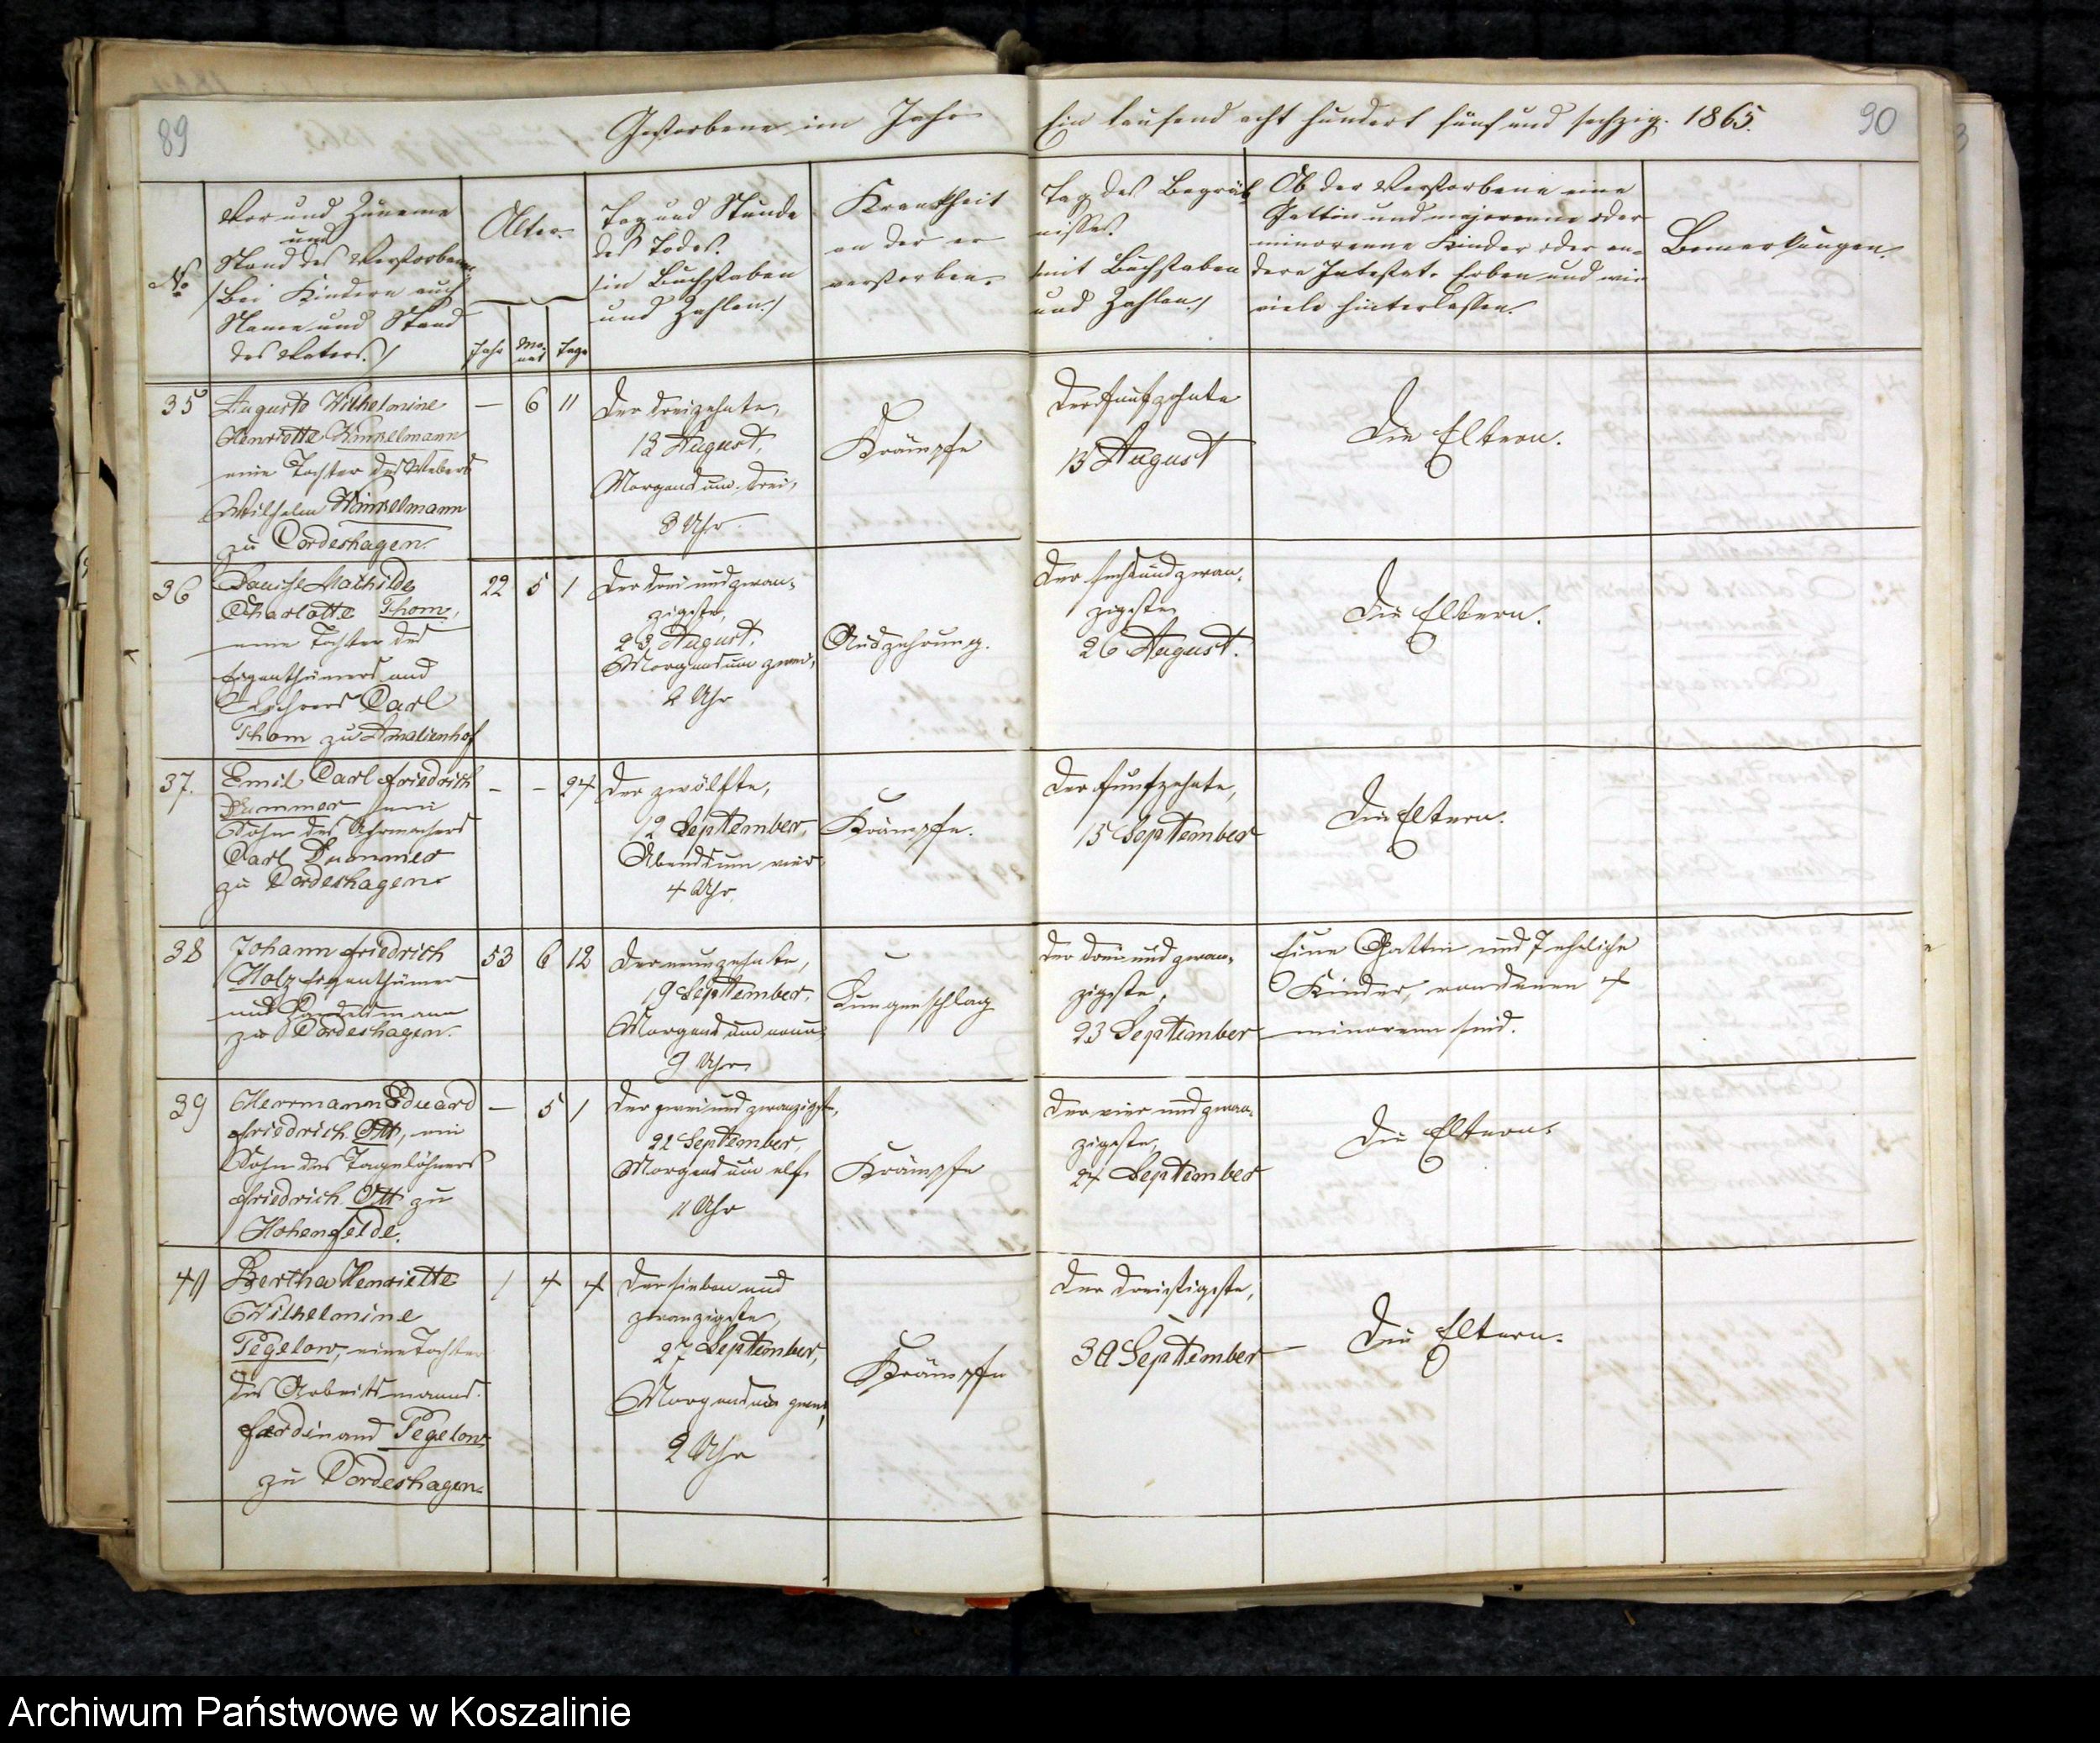 89
Gestorbene im Jahre
Ein tausend acht hundert fünf und sechzig. 1865.
90
No
Vor und Zuname
und
Stand des Verstorbenen
(Bei Kindern auch
Name und Stand
des Vaters.)
Alter.
Jahr
Mo-
nat
Tage
Tag und Stunde
des Todes.
(in Buchstaben
und Zahlen.)
Krankheit
an der er
verstorben.
Tag des Begräb-
nisses.
(mit Buchstaben
und Zahlen.)
Ob der Verstorbene eine
Gattin und majorenne oder
minorenne Kinder oder an-
dere Intestat-Erben und wie
viele hinterlassen.
Bemerkungen.
35
Auguste Wilhelmine
Henriette Winkelmann
eine Tochter des Webers
Wilhelm Winkelmann
zu Cordeshagen.
— 6 11
Der dreizehnte,
13 August,
Morgens um drei,
3 Uhr.
Krämpfe
Der funfzehnte
15 August
Die Eltern.
36
Louise Mathilde
Charlotte Thom,
eine Tochter des
Eigenthümers und
Lehrers Carl
Thom zu Amalienhof
22 5 1
Der drei und zwan-
zigste,
23 August,
Morgens um zwei,
2 Uhr
Auszehrung.
Der sechsundzwan-
zigste
26 August.
Die Eltern.
37.
Emil Carl Friedrich
Dummer, ein
Sohn des Uhrmachers
Carl Dummer
zu Cordeshagen.
- - 24
Der zwölfte,
12 September,
Abends um vier
4 Uhr.
Krämpfe.
Der funfzehnte,
15 September
Die Eltern.
38
Johann Friedrich
Holz Eigenthümer
und Handelsmann
zu Cordeshagen.
53 6 12
Der neunzehnte,
19 September,
Morgens um neun
9 Uhr
Lungenschlag
Der drei und zwan-
zigste,
23 September
Eine Gattin und 7 eheliche
Kinder, von denen 4
minorenn sind.
39
Herrmann Eduard
Friedrich Ott, ein
Sohn des Tagelöhners
Friedrich Ott zu
Hohenfelde.
— 5 1
Der zwei und zwanzigste,
22 September,
Morgens um elf,
11 Uhr
Krämpfe
Der vier und zwan-
zigste,
24 September
Die Eltern.
40
Bertha Henriette
Wilhelmine
Pegelow, eine Tochter
des Arbeitsmanns
Ferdinand Pegelow
zu Cordeshagen.
1 4 4
Der sieben und
zwanzigste,
27 September,
Morgens um zwei,
2 Uhr
Krämpfe
Der dreißigste,
30 September
Die Eltern.
Archiwum Państwowe w Koszalinie